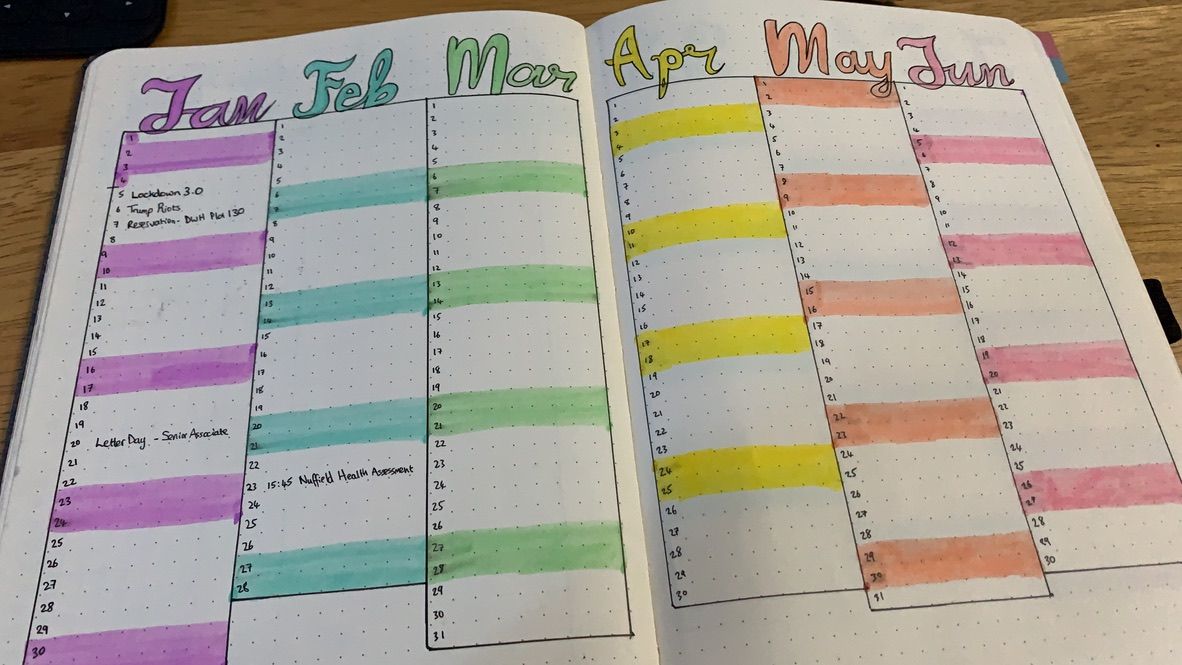 Jan
1
2
3
4
5 Lockdown 3.0
6 Trump Riots
7 Reservation - DWH Plot 130
8
9
10
11
12
13
15
16
17
18
19
20 Letter Day - Senior Associate
21
22
23
24
25
26
27
28
29
30
Feb
1
2
3
4
5
6
7
8
9
10
11
12
13
14
15
16
17
18
19
20
21
22
23 15:45 Nuffield Health Assessment
24
25
26
27
28
Mar
1
2
3
4
5
6
7
8
9
10
11
12
13
14
15
16
17
18
19
20
21
22
23
24
25
26
27
28
29
30
31
Apr
1
2
3
4
5
6
7
8
9
10
11
12
13
14
15
16
17
18
19
20
21
22
23
24
25
26
27
28
29
30
May
1
2
3
4
5
6
7
8
9
10
11
12
13
14
15
16
17
18
19
20
21
22
23
24
25
26
27
28
29
30
31
Jun
2
3
4
5
6
7
8
9
10
11
12
13
14
15
16
17
18
19
20
21
22
23
24
25
26
27
28
29
30